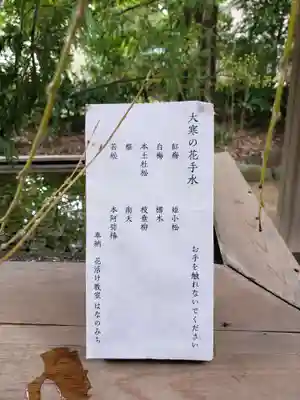 大寒の花手水
お手を触れないでください
紅梅　姫小松
白梅　蠟木
本土杜松　枝垂柳
椿　南天
若松　本阿弥椿
奉納　花活け教室 はなのみち